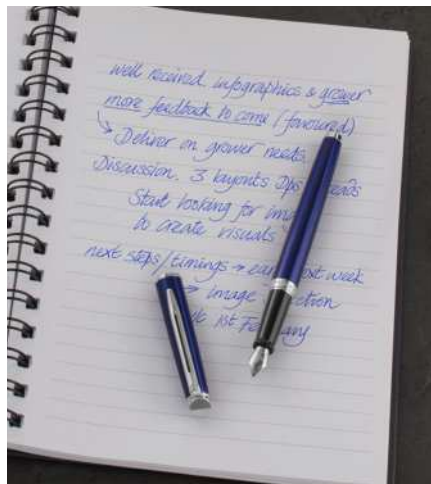 well received. infographics & grower
more feedback to come (favoured)
↳ Deliver on grower needs.
Discussion. 3 layouts Dps
Start looking for
to create visuals
next steps/timings → week
→ image
1st